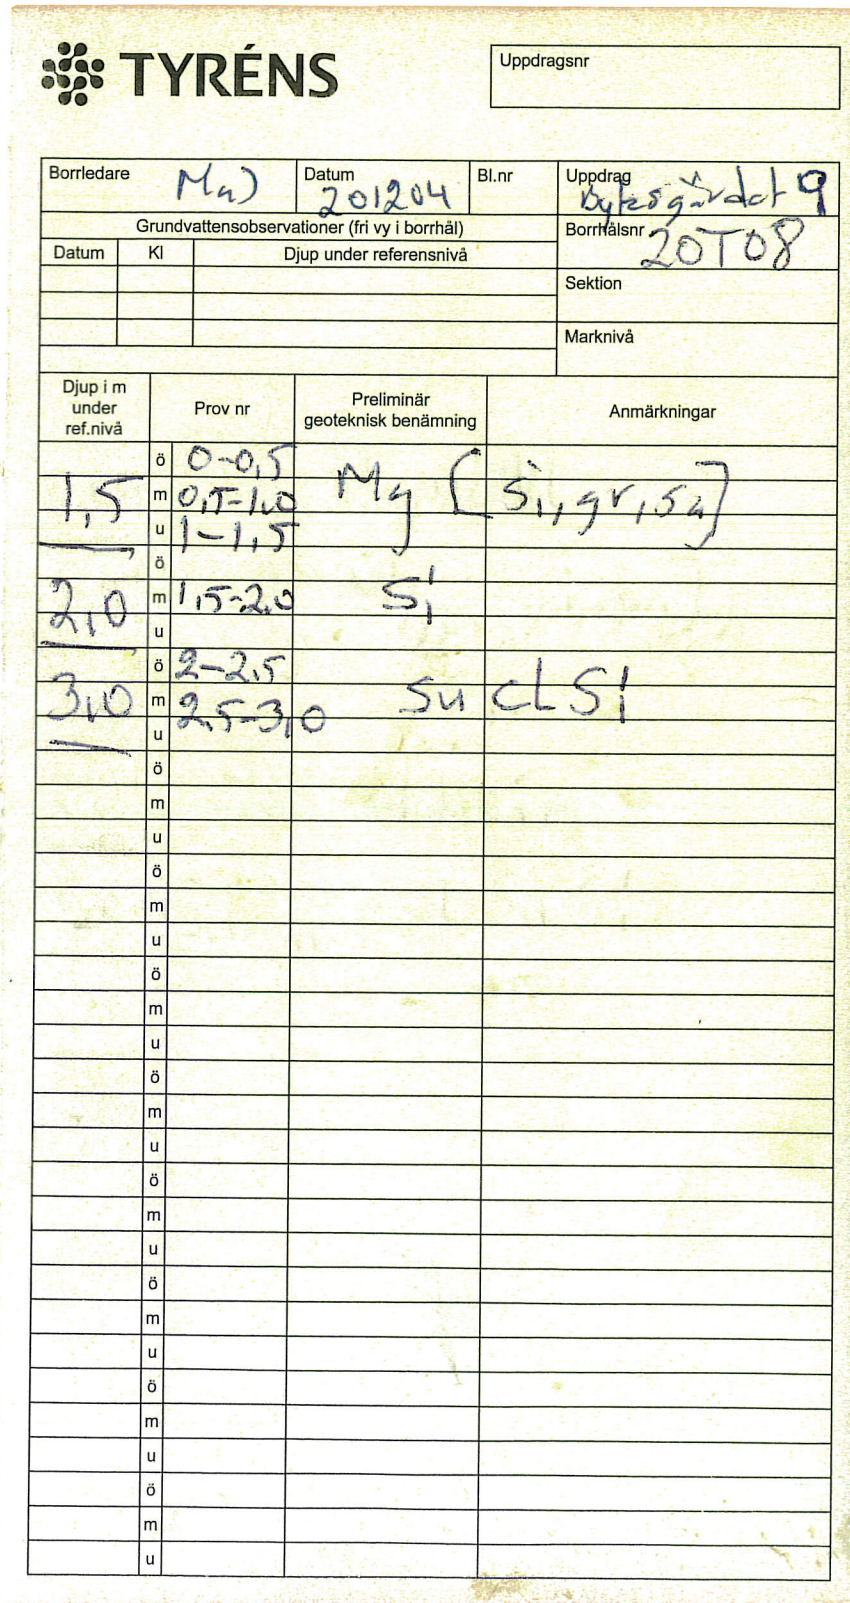 TYRÉNS
Uppdragsnr
Borrledare
Datum 201204
Bl.nr
Uppdrag 9
Grundvattensobservationer (fri vy i borrhål)
Borrhålsnr 20T08
Datum Kl Djup under referensnivå
Sektion
Marknivå
Djup i m under ref.nivå
Prov nr
Preliminär geoteknisk benämning
Anmärkningar
ö 0-0,5
1,5 m 0,5-1,0 Mg [Si, gr, sa]
u 1-1,5
ö
2,0 m 1,5-2,0 Si
u
ö 2-2,5
3,0 m 2,5-3,0 su cL Si
u
ö
m
u
ö
m
u
ö
m
u
ö
m
u
ö
m
u
ö
m
u
ö
m
u
ö
m
u